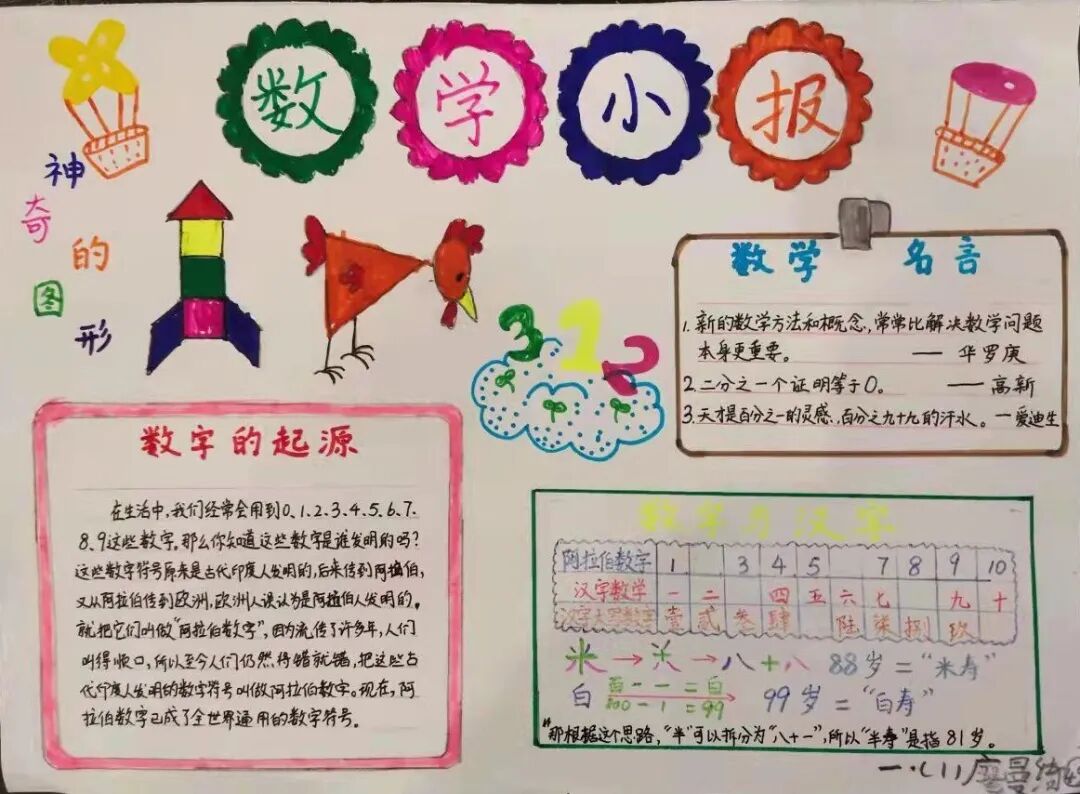 数学小报
神奇的图形
3 1 2
数学 名言
1. 新的数学方法和概念,常常比解决数学问题
本身更重要。 —— 华罗庚
2. 二分之一个证明等于0。 —— 高斯
3. 天才是百分之一的灵感,百分之九十九的汗水。—爱迪生
数字的起源
在生活中,我们经常会用到0、1、2、3、4、5、6、7、
8、9这些数字。那么你知道这些数字是谁发明的吗?
这些数字符号原来是古代印度人发明的,后来传到阿拉伯,
又从阿拉伯传到欧洲,欧洲人误认为是阿拉伯人发明的。
就把它们叫做“阿拉伯数字”,因为流传了许多年,人们
叫得顺口,所以至今人们仍然将错就错,把这些古
代印度人发明的数字符号叫做阿拉伯数字。现在,阿
拉伯数字已成了全世界通用的数字符号。
数字与汉字
阿拉伯数字 1 3 4 5 7 8 9 10
汉字数学 一 二 四 五 六 七 九 十
汉字大写数字 壹 贰 叁 肆 陆 柒 捌 玖
米→ →八十八 88岁=“米寿”
白 百-一=白
100-1=99 99岁=“白寿”
“那根据这个思路,“半”可以拆分为“八十一”,所以“半寿”是指81岁。